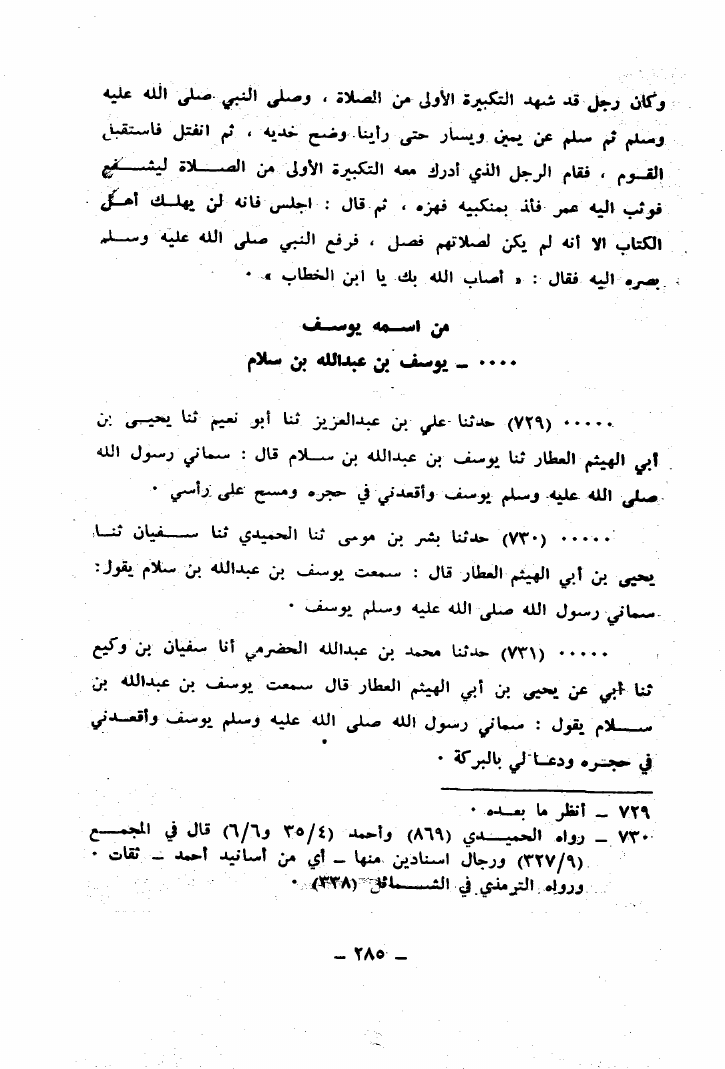 وكان رجل قد شهد التكبيرة الأولى من الصلاة ، وصلى النبي صلى الله عليه
وسلم ثم سلم عن يمين ويسار حتى رأينا وضح خديه ، ثم انفتل فاستقبل
القوم ، فقام الرجل الذي أدرك معه التكبيرة الأولى من الصلاة ليشفع
فوثب اليه عمر فأخذ بمنكبيه فهزه ، ثم قال : اجلس فانه لن يهلك أهل
الكتاب الا أنه لم يكن لصلاتهم فصل ، فرفع النبي صلى الله عليه وسلم
بصره اليه فقال : « أصاب الله بك يا ابن الخطاب » ٠
من اسمه يوسف
٠٠٠٠ ــ يوسف بن عبدالله بن سلام
٠٠٠٠٠ (٧٢٩) حدثنا علي بن عبدالعزيز ثنا أبو نعيم ثنا يحيى بن
أبي الهيثم العطار ثنا يوسف بن عبدالله بن سلام قال : سماني رسول الله
صلى الله عليه وسلم يوسف وأقعدني في حجره ومسح على رأسي ٠
٠٠٠٠٠ (٧٣٠) حدثنا بشر بن موسى ثنا الحميدي ثنا سفيان ثنا
يحيى بن أبي الهيثم العطار قال : سمعت يوسف بن عبدالله بن سلام يقول :
سماني رسول الله صلى الله عليه وسلم يوسف ٠
٠٠٠٠٠ (٧٣١) حدثنا محمد بن عبدالله الحضرمي أنا سفيان بن وكيع
ثنا أبي عن يحيى بن أبي الهيثم العطار قال سمعت يوسف بن عبدالله بن
سلام يقول : سماني رسول الله صلى الله عليه وسلم يوسف وأقعدني
في حجره ودعا لي بالبركة ٠
٧٢٩ ــ أنظر ما بعده ٠
٧٣٠ ــ رواه الحميدي (٨٦٩) وأحمد (٣٥/٤ و٦/٦) قال في المجمع
(٣٢٧/٩) ورجال اسنادين منها ــ أي من أسانيد أحمد ــ ثقات ٠
ورواه الترمذي في الشمائل (٣٣٨) ٠
ــ ٢٨٥ ــ